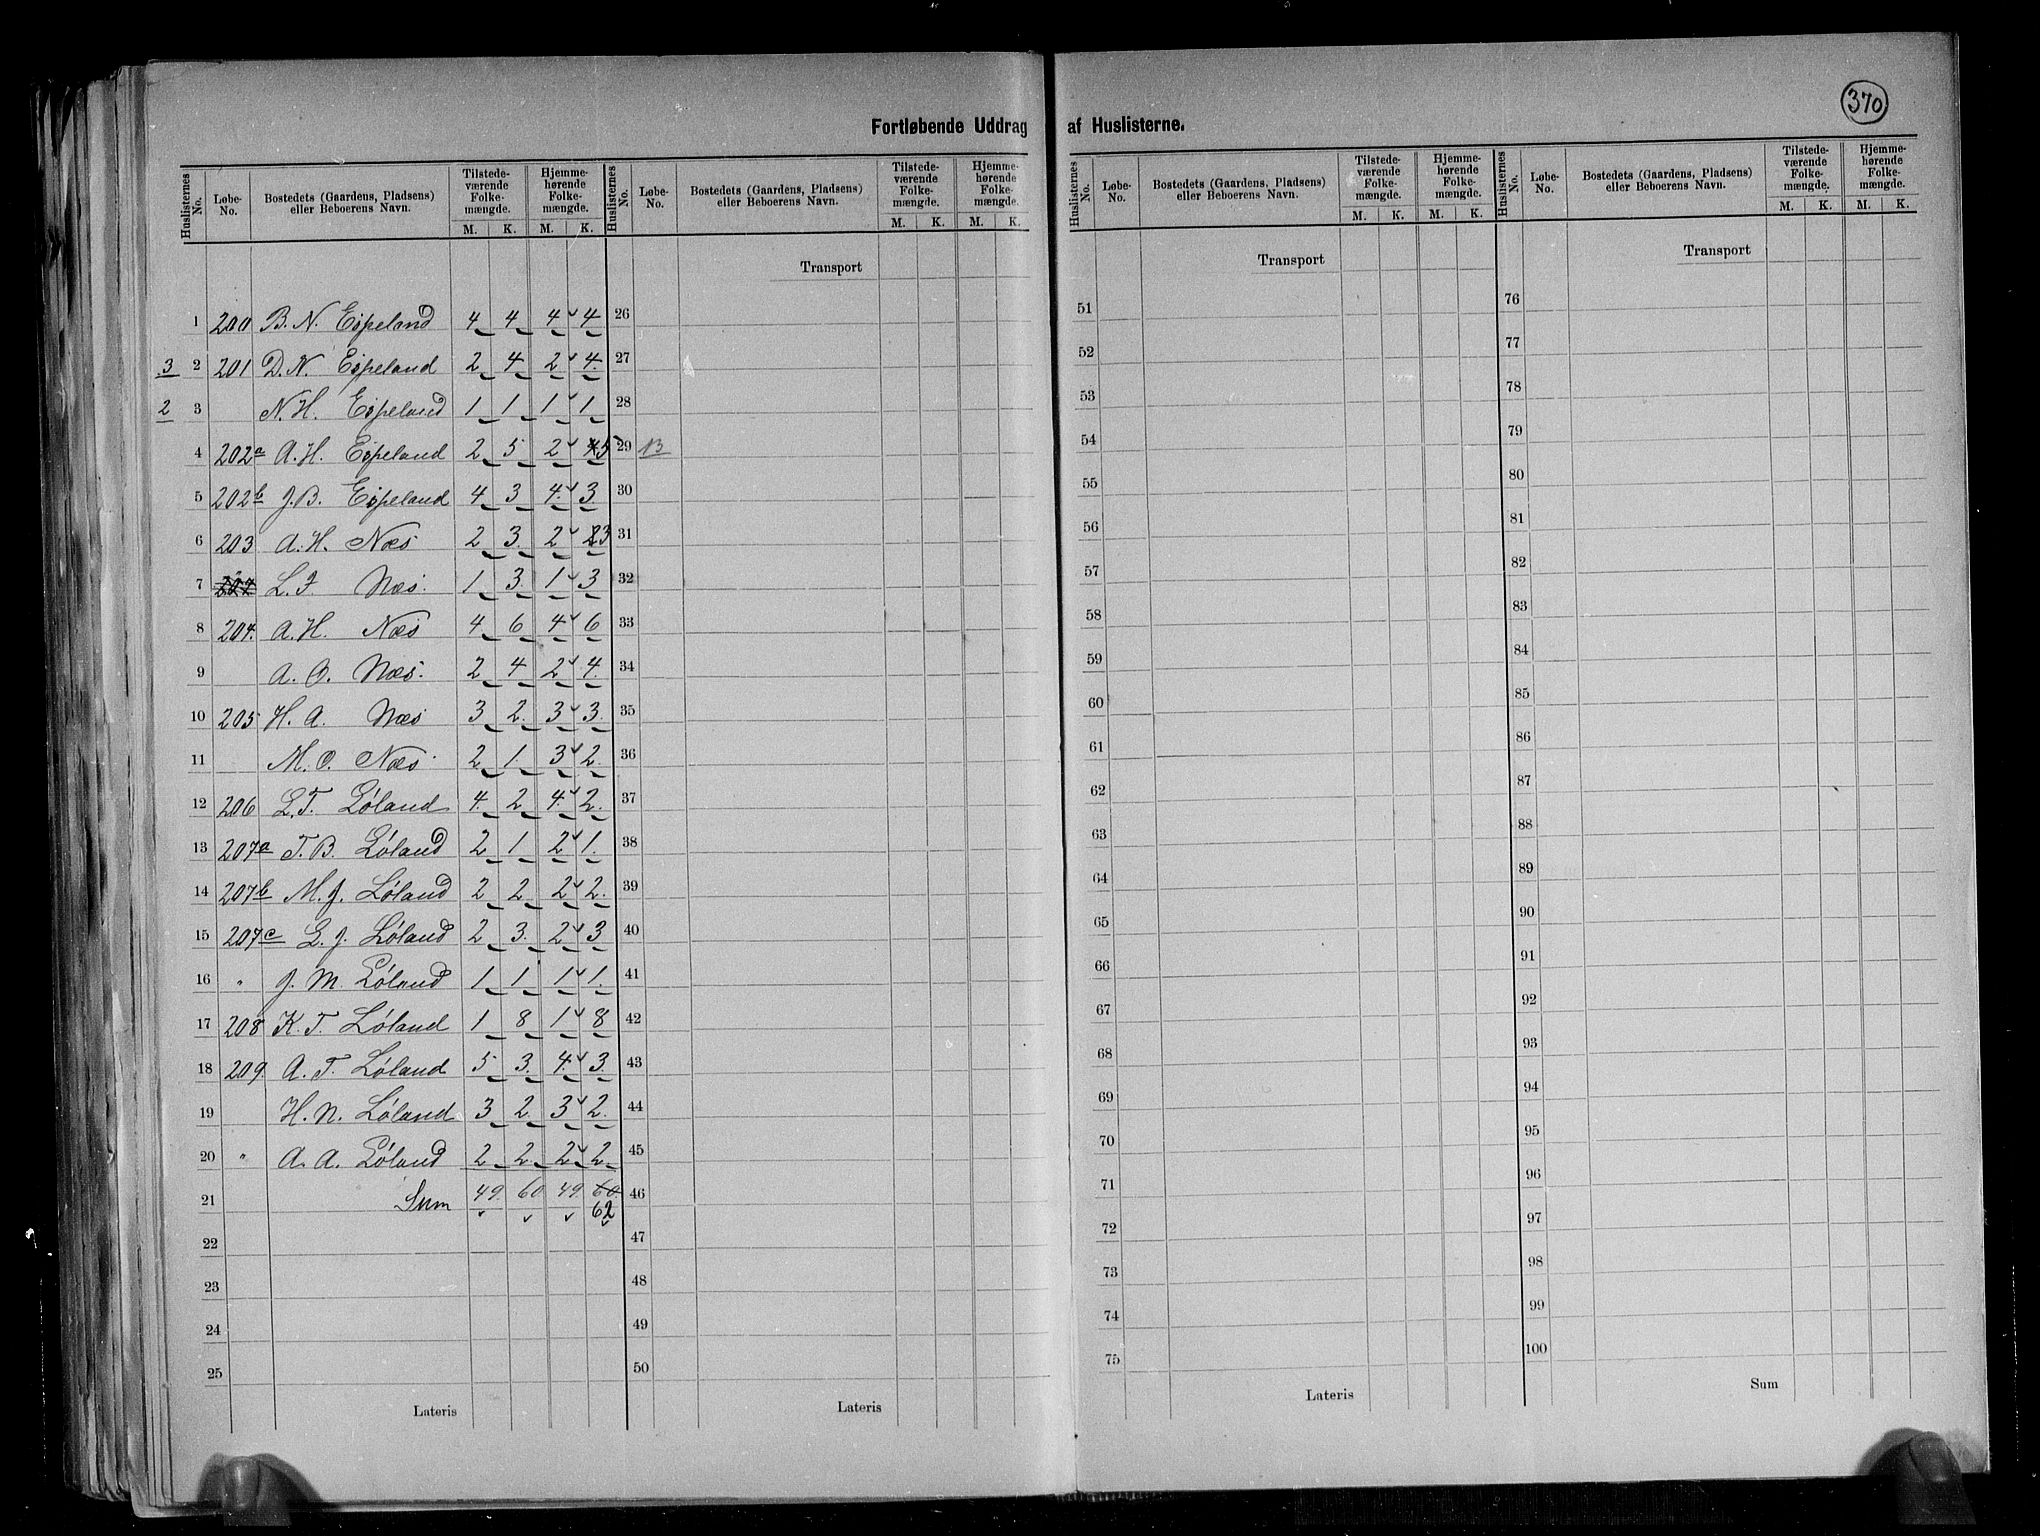 370
Fortløbende Uddrag af Huslisterne.
Huslisternes No. Løbe-No. Bostedets (Gaardens, Pladsens) eller Beboerens Navn. Tilstedeværende Folkemængde. M. K. Hjemmehørende Folkemængde. M. K. Huslisternes No. Løbe-No. Bostedets (Gaardens, Pladsens) eller Beboerens Navn. Tilstedeværende Folkemængde. M. K. Hjemmehørende Folkemængde. M. K. Huslisternes No. Løbe-No. Bostedets (Gaardens, Pladsens) eller Beboerens Navn. Tilstedeværende Folkemængde. M. K. Hjemmehørende Folkemængde. M. K. Huslisternes No. Løbe-No. Bostedets (Gaardens, Pladsens) eller Beboerens Navn. Tilstedeværende Folkemængde. M. K. Hjemmehørende Folkemængde. M. K.
Transport Transport Transport
1 200 B. N. Espeland 4 4 4 4 26 51 76
3 2 201 D. N. Espeland 2 4 2 4. 27 52 77
2 3 N. H. Espeland 1 1 1 1 28 53 78
4 202a A. H. Espeland 2 5 2 4 5 29 13 54 79
5 202b J. B. Espeland 4 3 4. 3 30 55 80
6 203 A. H. Næs 2 3. 2 2 3 31 56 81
7 L. J Næs. 1 3. 1 3 32 57 82
8 204. A. H. Næs 4 6 4 6 33 58 83
9 A. O. Næs. 2 4 2 4. 34 59 84
10 205 H. A. Næs 3 2. 3 3. 35 60 85
11 M. O. Næs. 2 1. 3 2. 36 61 86
12 206 L. T. Løland 4. 2 4. 2. 37 62 87
13 207a T. B. Løland 2 1 2 1. 38 63 88
14 207b M. J. Løland 2 2 2 2. 39 64 89
15 207c G. J. Løland 2 3. 2 3 40 65 90
16 " J. M. Løland 1 1 1 1. 41 66 91
17 208 K. T. Løland 1 8 1 8 42 67 92
18 209 A. T. Løland 5 3. 4. 3. 43 68 93
19 H. N. Løland 3 2. 3 2. 44 69 94
20 " A. A. Løland 2 2. 2 2 45 70 95
21 Sum 49. 60 49. 60. 46 71 96
62
22 47 72 97
23 48 73 98
24 49 74 99
25 50 75 100
Lateris Lateris Lateris Sum